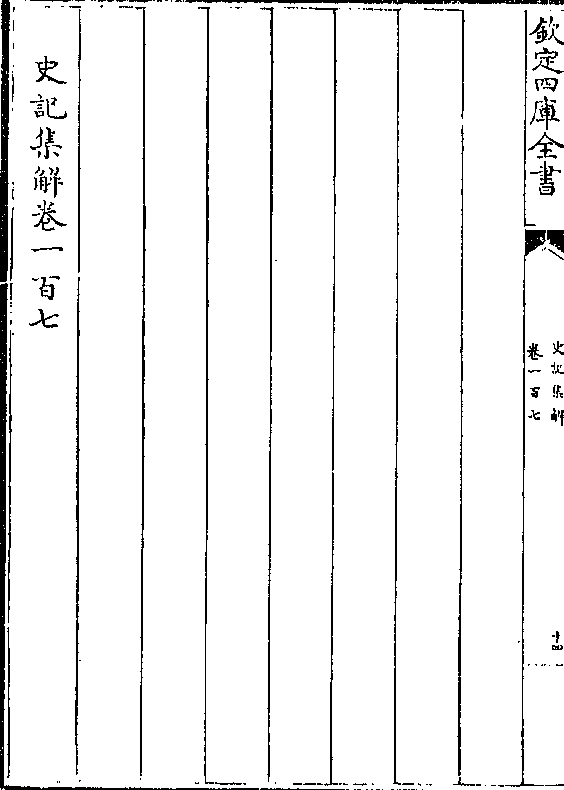 欽定四庫全書
史記集解
卷一百七
十四
史記集解卷一百七